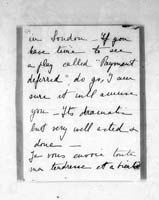 in London - If you
have time to see
a play called "Payment
deferred", do go, I am
sure it will amuse
you - It's dramatic
but very well acted &
done -
Je vous envoie toute
ma tendresse et à